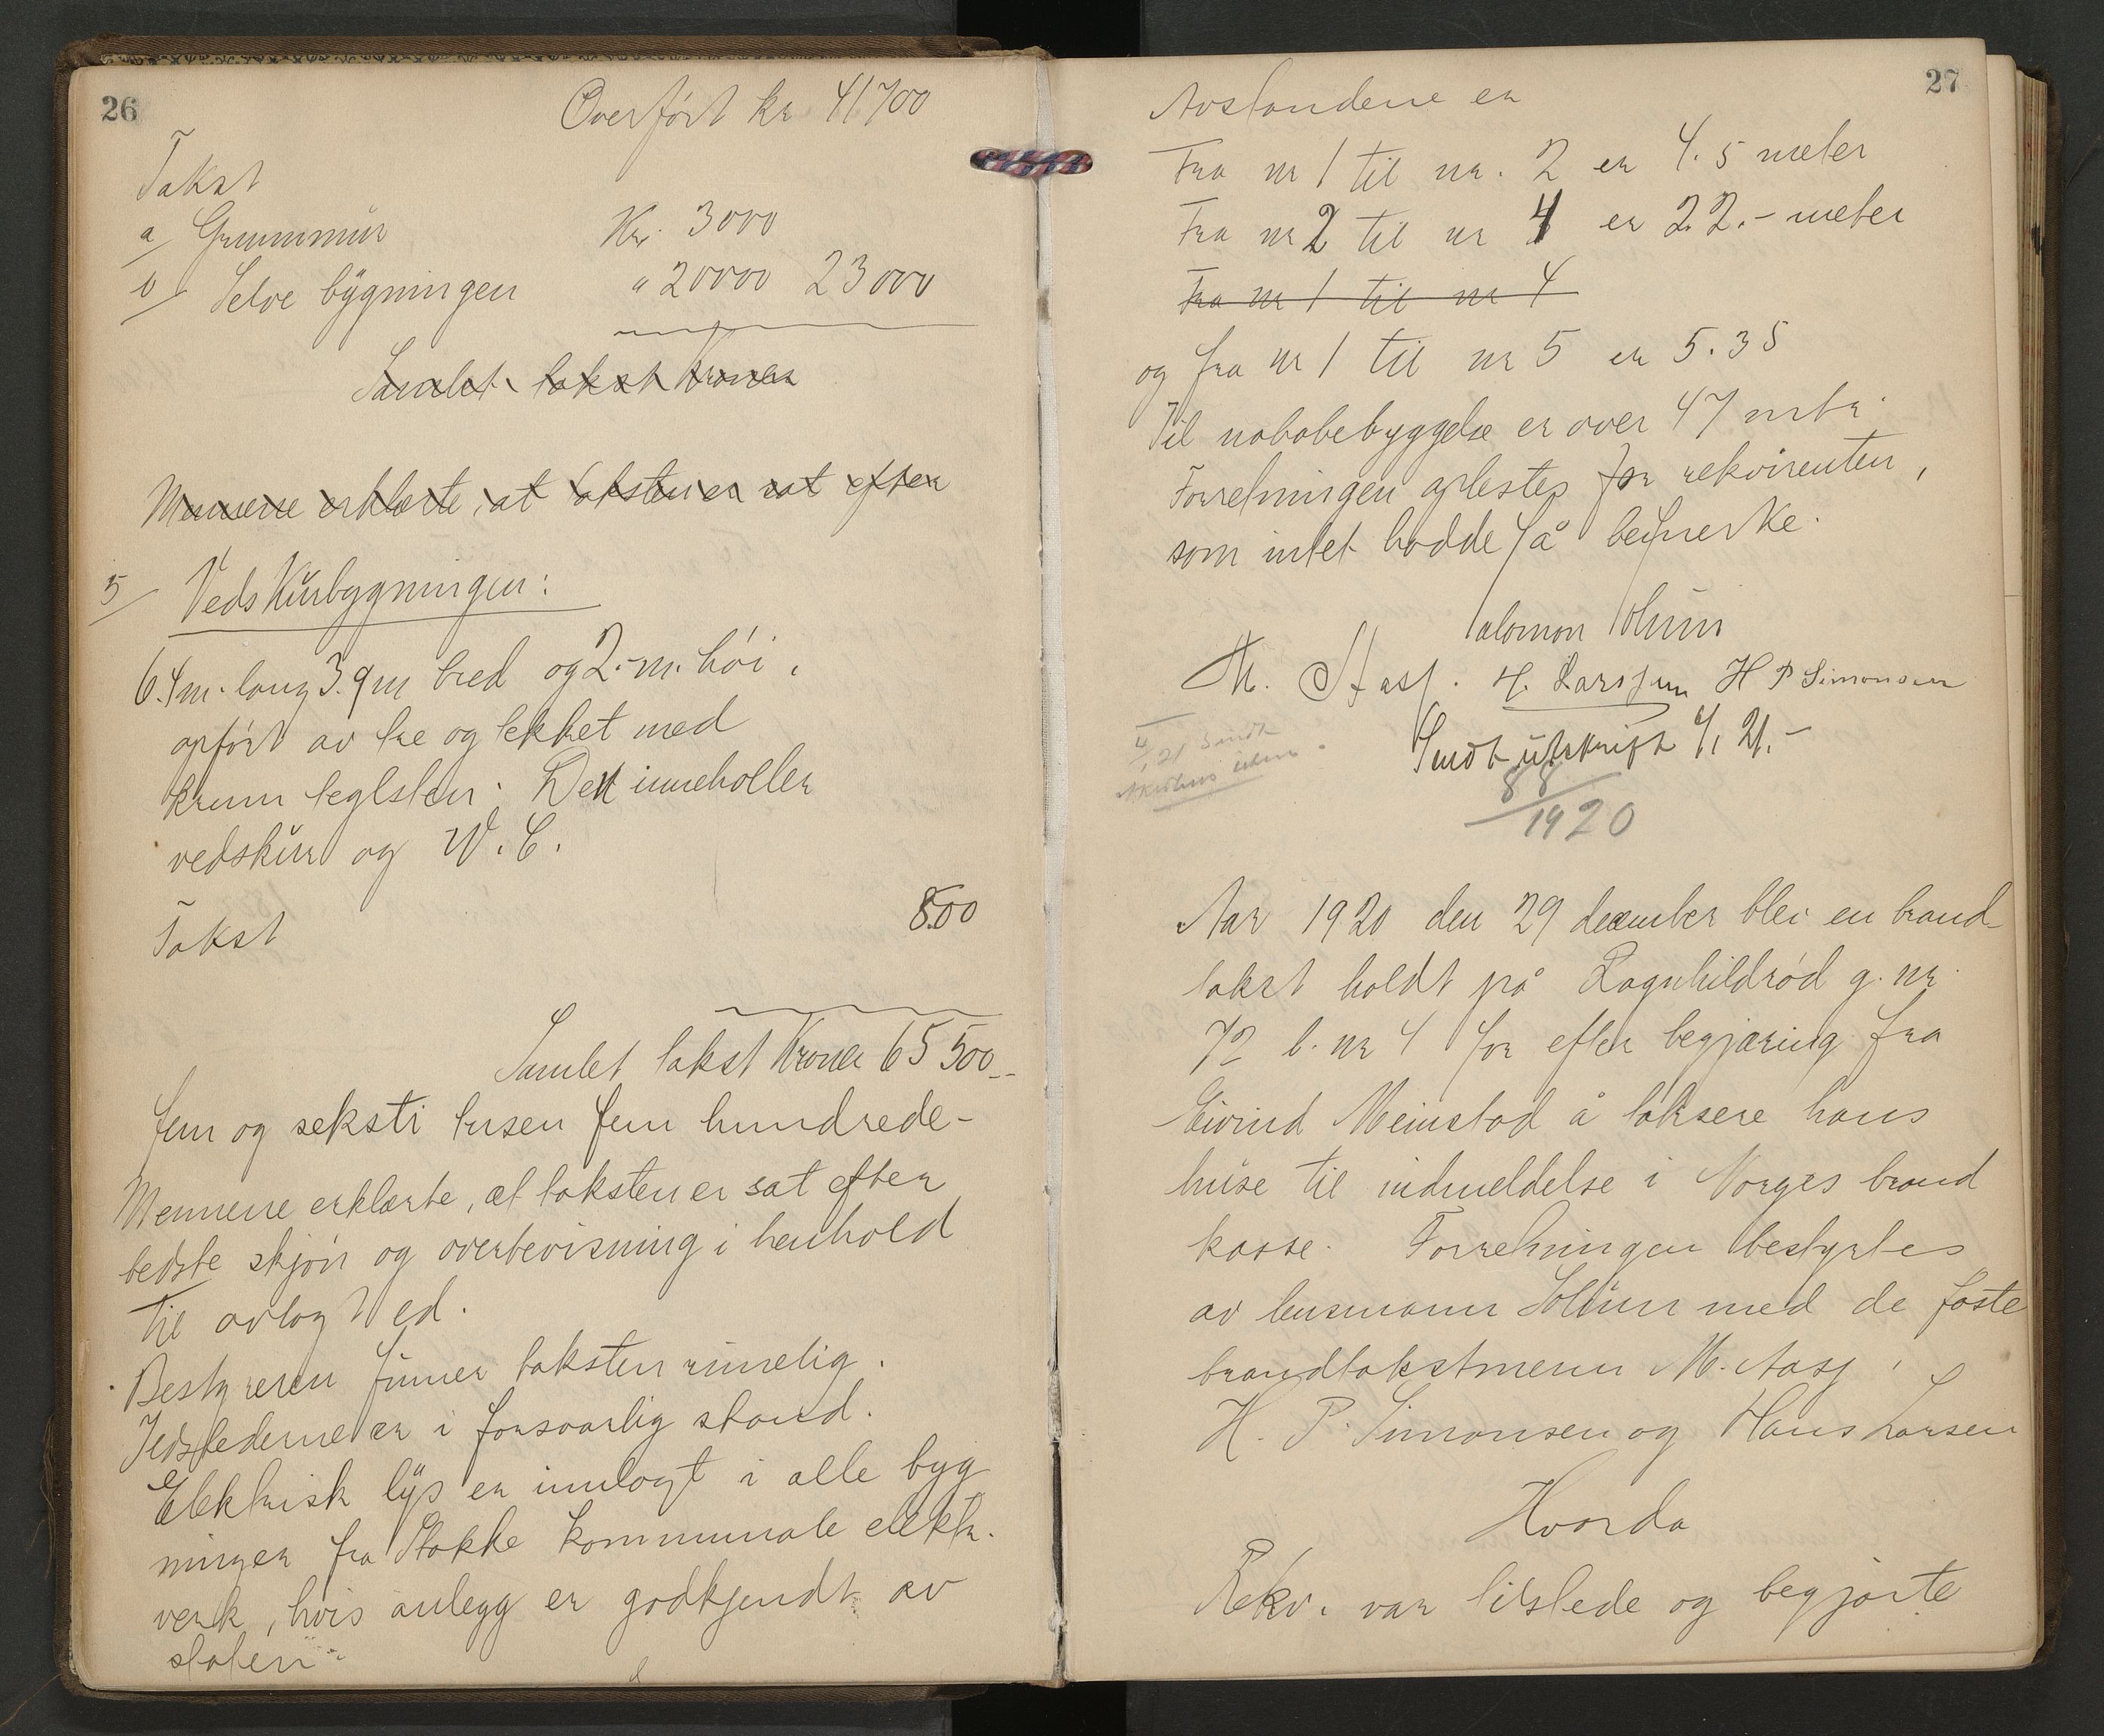 26
Overført kr 41700
Takst
a/ Grunnmur Kr. 3000
b/ Selve bygningen " 20000 23000
Samlet takst Kroner
Mennene erklærte, at taksten er sat efter
5/ Vedskurbygningen:
6.4m. lang 3.9m bred og 2.-m. høi,
opført av tre og tekket med
krum teglsten. Den inneholler
vedskur og W.C.
Takst 800
Samlet takst Kroner 65 500.-
fem og seksti tusen fem hundrede-
Mennene erklærte, at taksten er sat efter
bedste skjøn og overbevisning i henhold
til avlagt ed.
Bestyreren finner taksten rimelig.
Ildstederne er i forsvarlig stand.
Elektrisk lys er innlagt i alle byg
ninger fra Stokke kommunale elektr.
verk, hvis anlegg er godkjendt av
staten
27
Avstandene er
Fra nr 1 til nr. 2 er 4.5 meter
Fra nr 2 til nr 4 er 22.- meter
Fra nr 1 til nr 4
og fra nr 1 til nr 5 er 5.35
Til nabobebyggelse er over 47 mtr.
Forretningen oplestes for rekvirenten,
som intet hadde å bemerke.
Salomon Solum
M. Aasj. H. Larssen H P Simonsen
Sendt utskrift 4/1 21.-
4/1 21 Sendt
88/1920
Aar 1920 den 29 december blei en brand
takst holdt på Ragnhildrød g. nr.
72 b. nr 4 for efter begjæring fra
Eivind Meinstad å taksere hans
huse til indmeldelse i Norges brand
kasse. Forretningen bestyrtes
av lensmann Solum med de faste
brandtakstmenn M. Aasj,
H. P. Simonsen og Hans Larsen
Hvorda
Rekv. var tilstede og begjærte